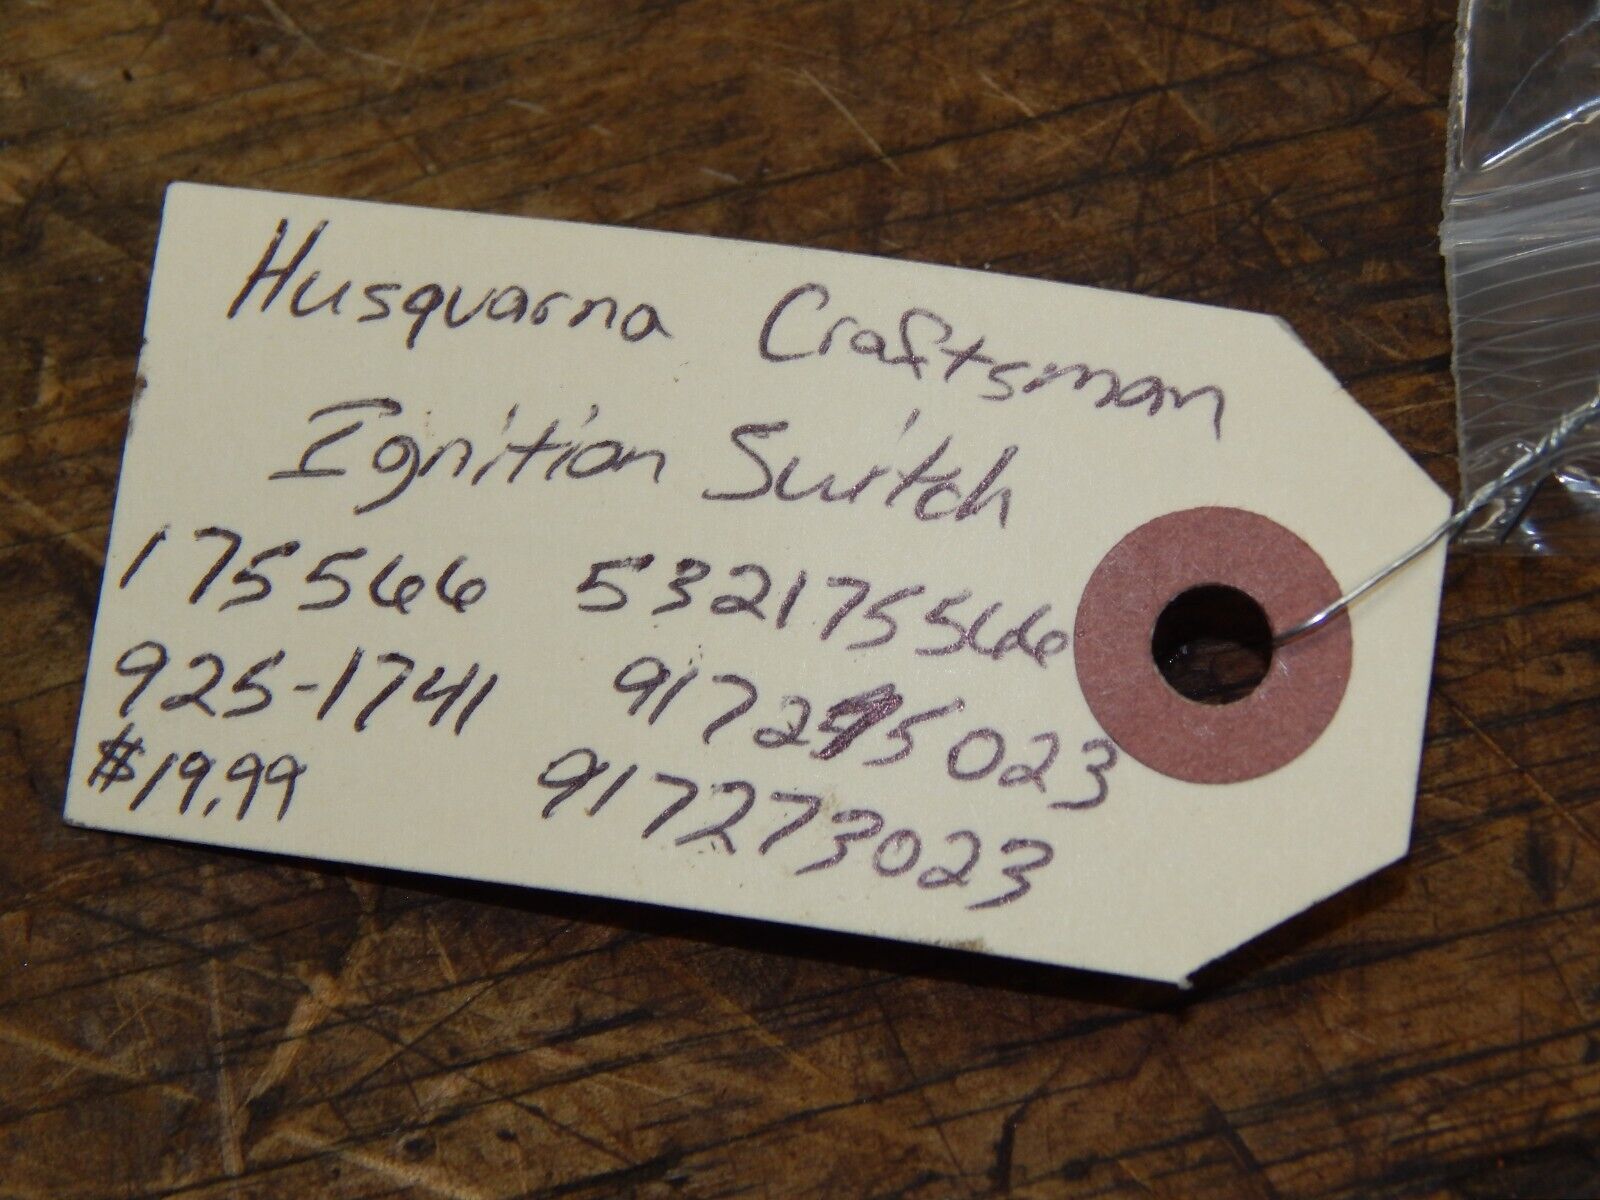 Husqvarna Craftsman
Ignition Switch
175566 532175566
925-1741
$19.99 917273023